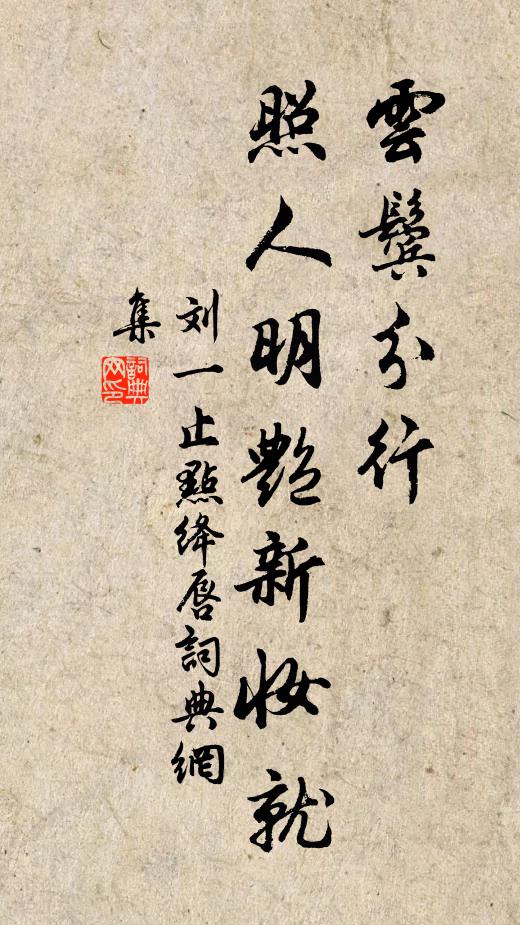 雲鬢分行
照人明艷新妆就
刘一止點绛唇詞典網
集
詞典网印